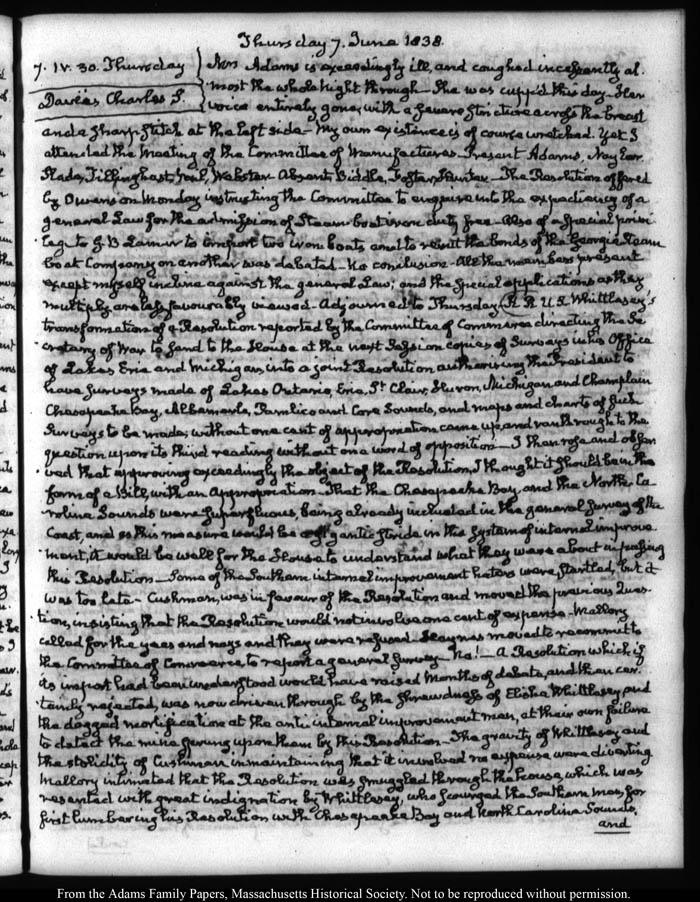 Thursday 7. June 1838.
7. IV. 30. Thursday
Davies Charles S.
Mrs Adams is exceedingly ill, and coughed incessantly al-
most the whole night through. She was cupp'd this day. Her
voice entirely gone, with a severe stricture across the breast
and a sharp stitch at the left side. My own existence is of course wretched. Yet I
attended the Meeting of the Committee of Manufactures. Present Adams, Naylor
Slade, Tillinghast, Vail, Webster. Absent Biddle, Foster, Hunter. The Resolution offered
by Owens on Monday instructing the Committee to enquire into the expediency of a
general Law for the admission of Steam boat iron duty free. Also of a special privi-
lege to G. B Lamar to import two iron boats and to remit the bonds of the Georgia Steam
boat Company on another was debated. No conclusion. All the members present
except myself incline against the general Law; and the special applications as they
multiply are less favourably viewed. Adjourned to Thursday. H. R. U. S. Whittlesey's
transformation of a Resolution reported by the Committee of Commerce directing the Se-
cretary of War to send to the House at the next Session copies of Surveys in his Office
of Lakes Erie and Michigan, into a joint Resolution authorising the President to
have surveys made of Lakes Ontario, Erie, St Clair, Huron, Michigan and Champlain
Chesapeake Bay, Albemarle, Pamlico and Core Sounds, and maps and charts of such
Surveys to be made, without one cent of appropriation came up, and ran through to the
question upon its third reading without one word of opposition. I then rose and obser-
ved that approving exceedingly the object of the Resolution, I thought it should be in the
form of a Bill, with an appropriation. That the Chesapeake Bay, and the North Ca-
rolina Sounds were superfluous, being already included in the general Survey of the
Coast, and as this measure would be a gigantic stride in the system of internal improve-
ment, it would be well for the House to understand what they were about in passing
this Resolution. Some of the Southern internal improvement haters were startled, but it
was too late. Cushman, was in favour of the Resolution and moved the previous Ques-
tion, insisting that the Resolution would not involve one cent of expense. Mallory
called for the yeas and nays and they were refused. Haynes moved to recommit to
the Committee of Commerce to report a general Survey. No! A Resolution which if
its import had been understood would have raised Months of debate, and then cer-
tainly rejected, was now driven through by the shrewdness of Elisha Whittlesey and
the dogged mortification of the anti internal improvement men, at their own failure
to detect the mine sprung upon them by this Resolution. The gravity of Whittlesey and
the stolidity of Cushman in maintaining that it involved no expense were diverting
Mallory intimated that the Resolution was smuggled through the house, which was
resented with great indignation by Whittlesey, who scourged the Southern men for
first lumbering his Resolution with Chesapeake Bay and North Carolina Sounds,
and
From the Adams Family Papers, Massachusetts Historical Society. Not to be reproduced without permission.